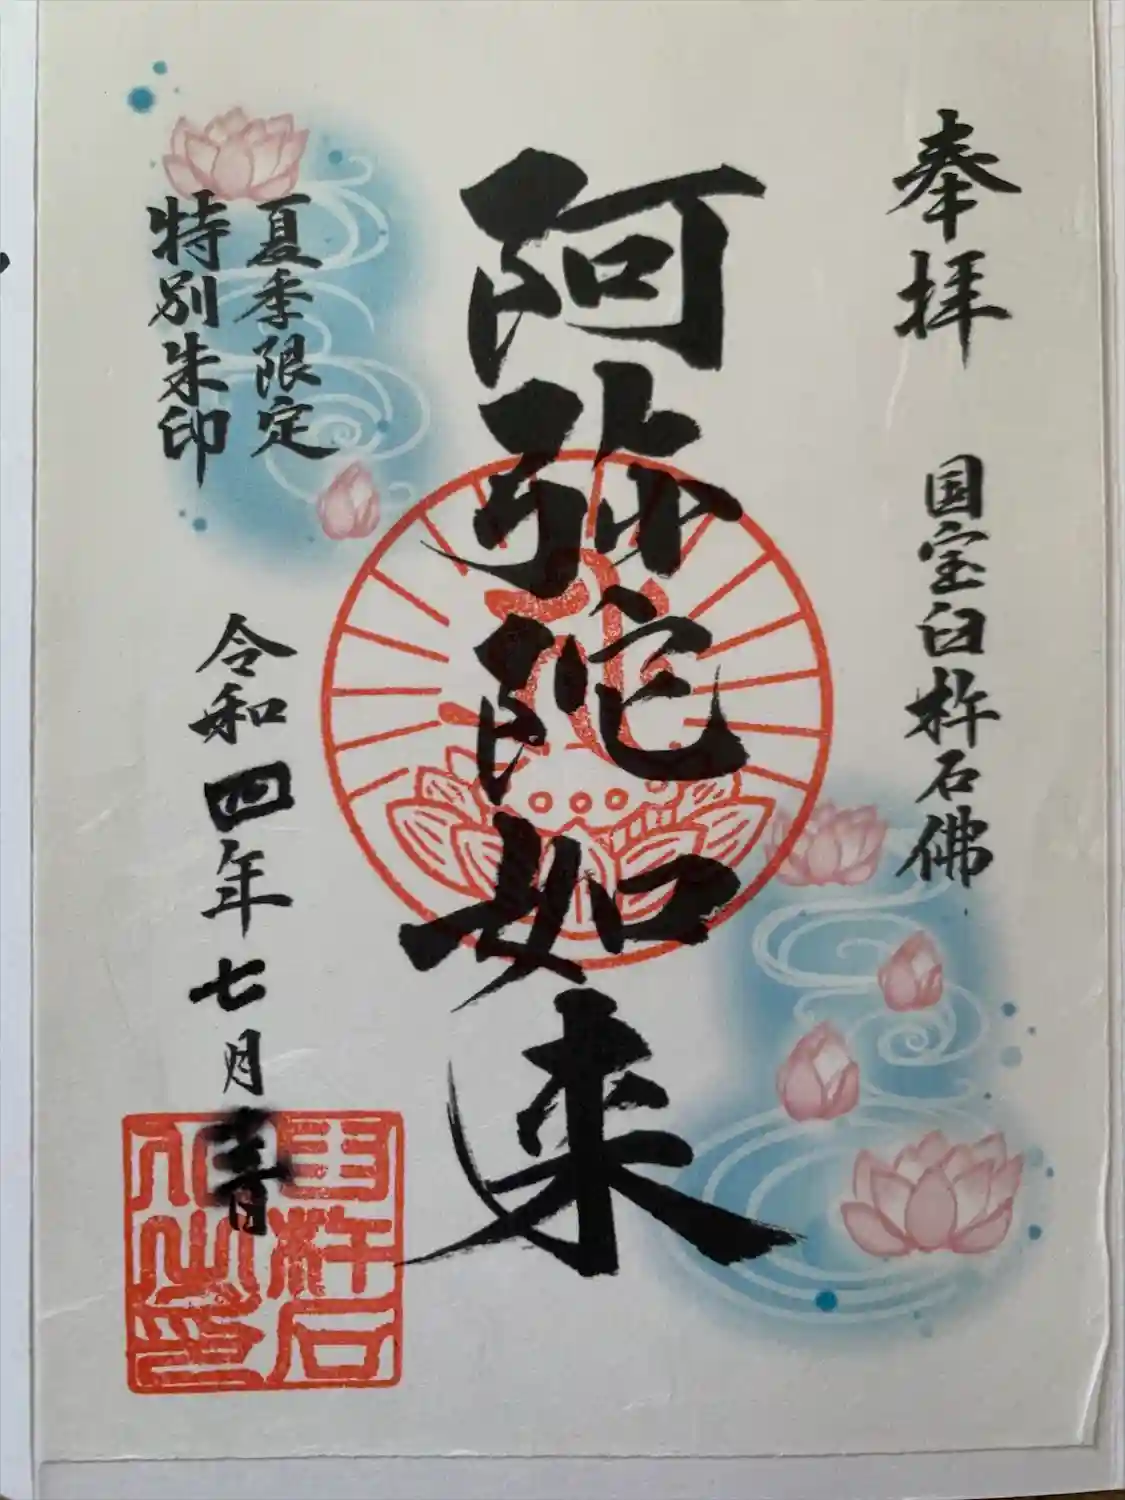 奉拝
国宝臼杵石佛
阿弥陀如来
夏季限定
特別朱印
令和四年七月
臼杵石
仏之印